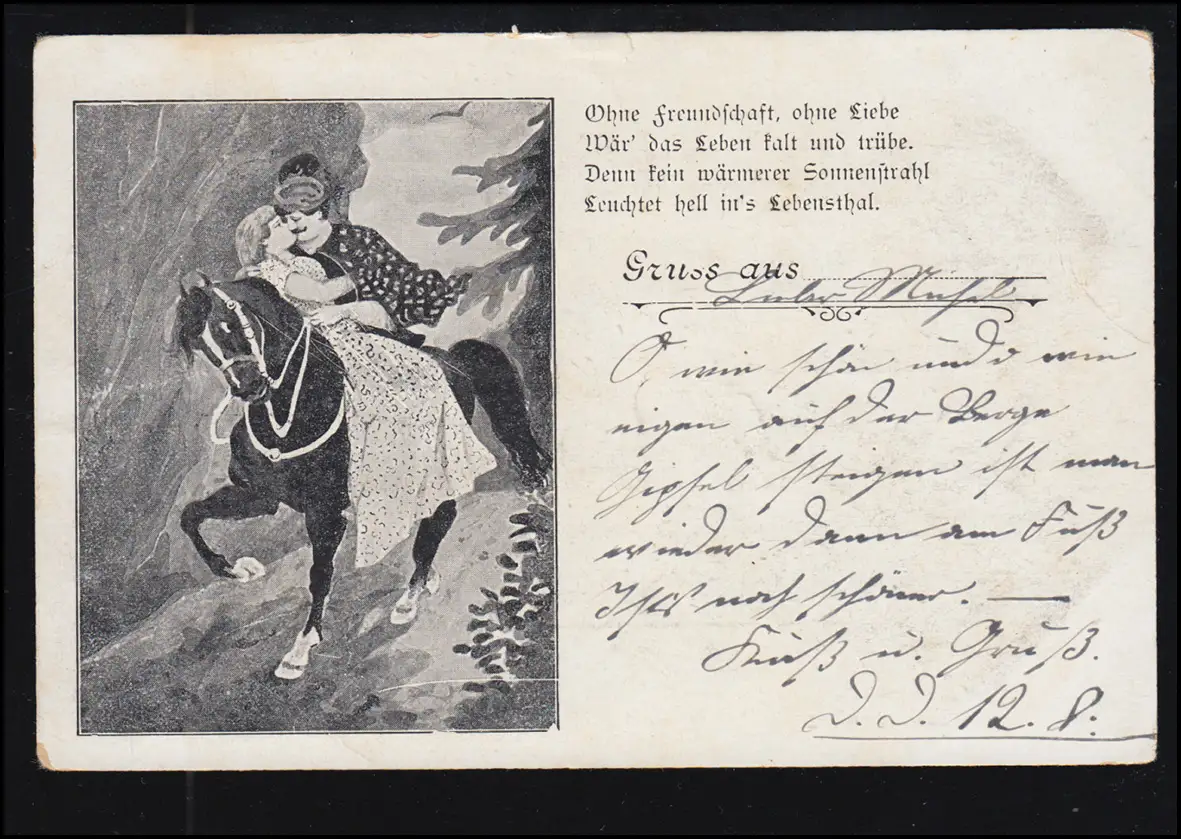 Ohne Freundschaft, ohne Liebe
Wär' das Leben kalt und trübe.
Denn kein wärmerer Sonnenstrahl
Leuchtet hell in's Lebensthal.
Gruss aus
Lieber
O, wie schön und wie
eigen auf der Berge
Gipfel steigen ist man
wieder dann am Fuß
Ists noch schöner. —
Kuß u. Gruß.
D. D. 12. 8.